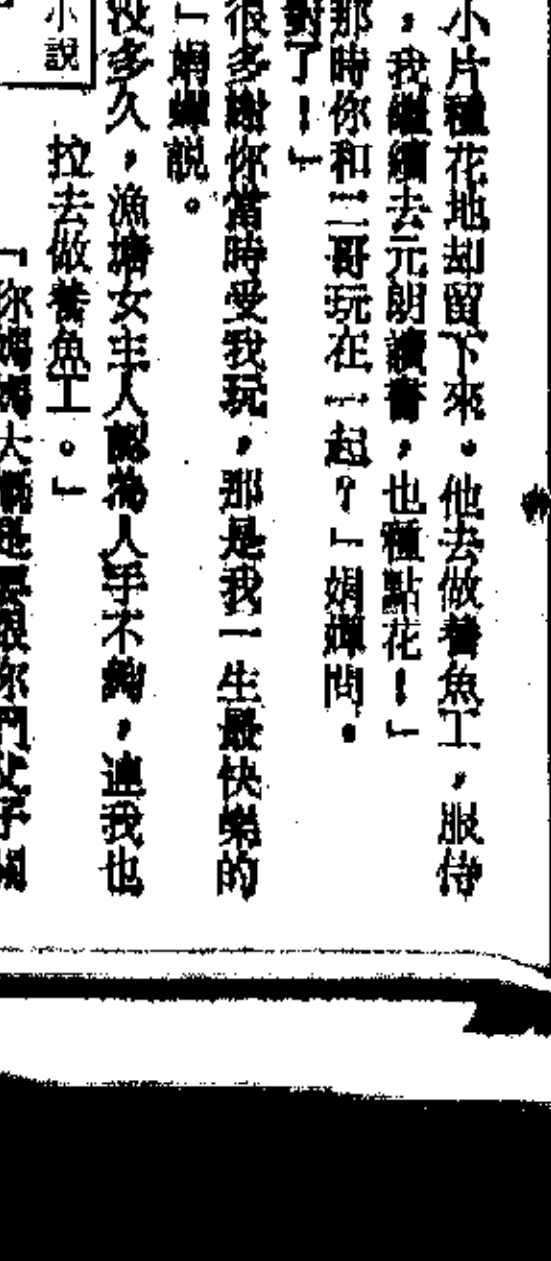 小片種花地却留下來。他去做養魚工，服侍
，我繼續去元朗讀書，也種點花！」
那時你和二哥玩在一起？」娟嬋問。
對了！」
很多謝你當時受我玩，那是我一生最快樂的
」娟嬋説。
沒多久，漁塘女主人認為人手不夠，連我也
拉去做養魚工。」
小説
「你媽媽大概是要跟你們父子